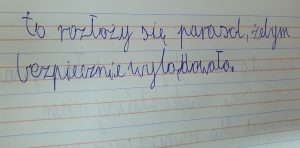 to rozłoży się parasol, żebym
bezpiecznie wylądowała.